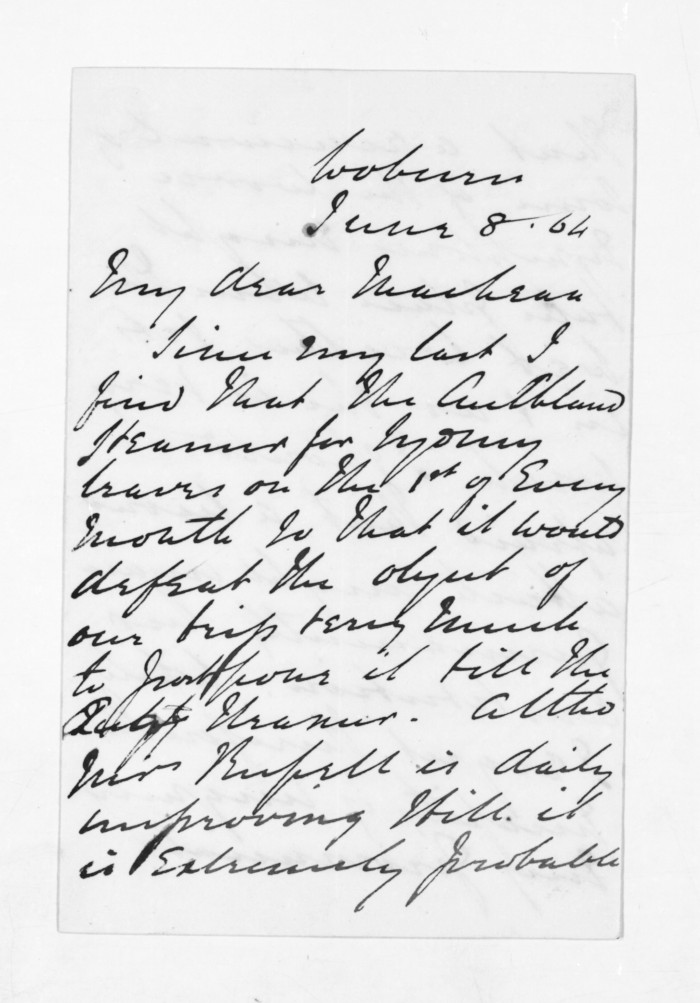 Woburn
June 8. 64
My dear Maclean
Since my last I
find that the Auckland
Steamer for Sydney
leaves on the 1st of Every
month so that it would
defeat the object of
our trip very much
to postpone it till the
Steamer. Altho
Mrs Russell is daily
improving still it
is Extremely probable